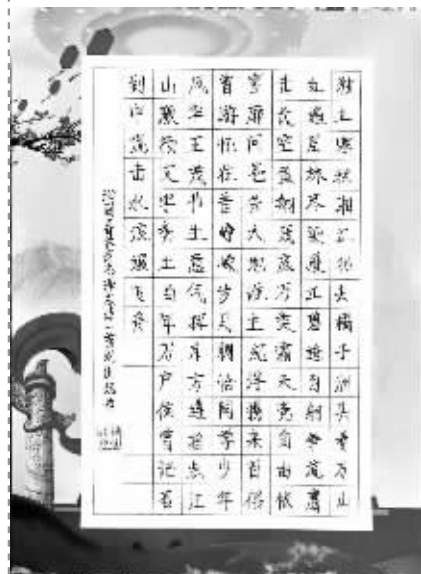 独立寒秋湘江北去橘子洲头看万山
红遍层林尽染漫江碧透百舸争流鹰
击长空鱼翔浅底万类霜天竞自由怅
寥廓问苍茫大地谁主沉浮携来百侣
曾游忆往昔峥嵘岁月稠恰同学少年
风华正茂书生意气挥斥方遒指点江
山激扬文字粪土当年万户侯曾记否
到中流击水浪遏飞舟